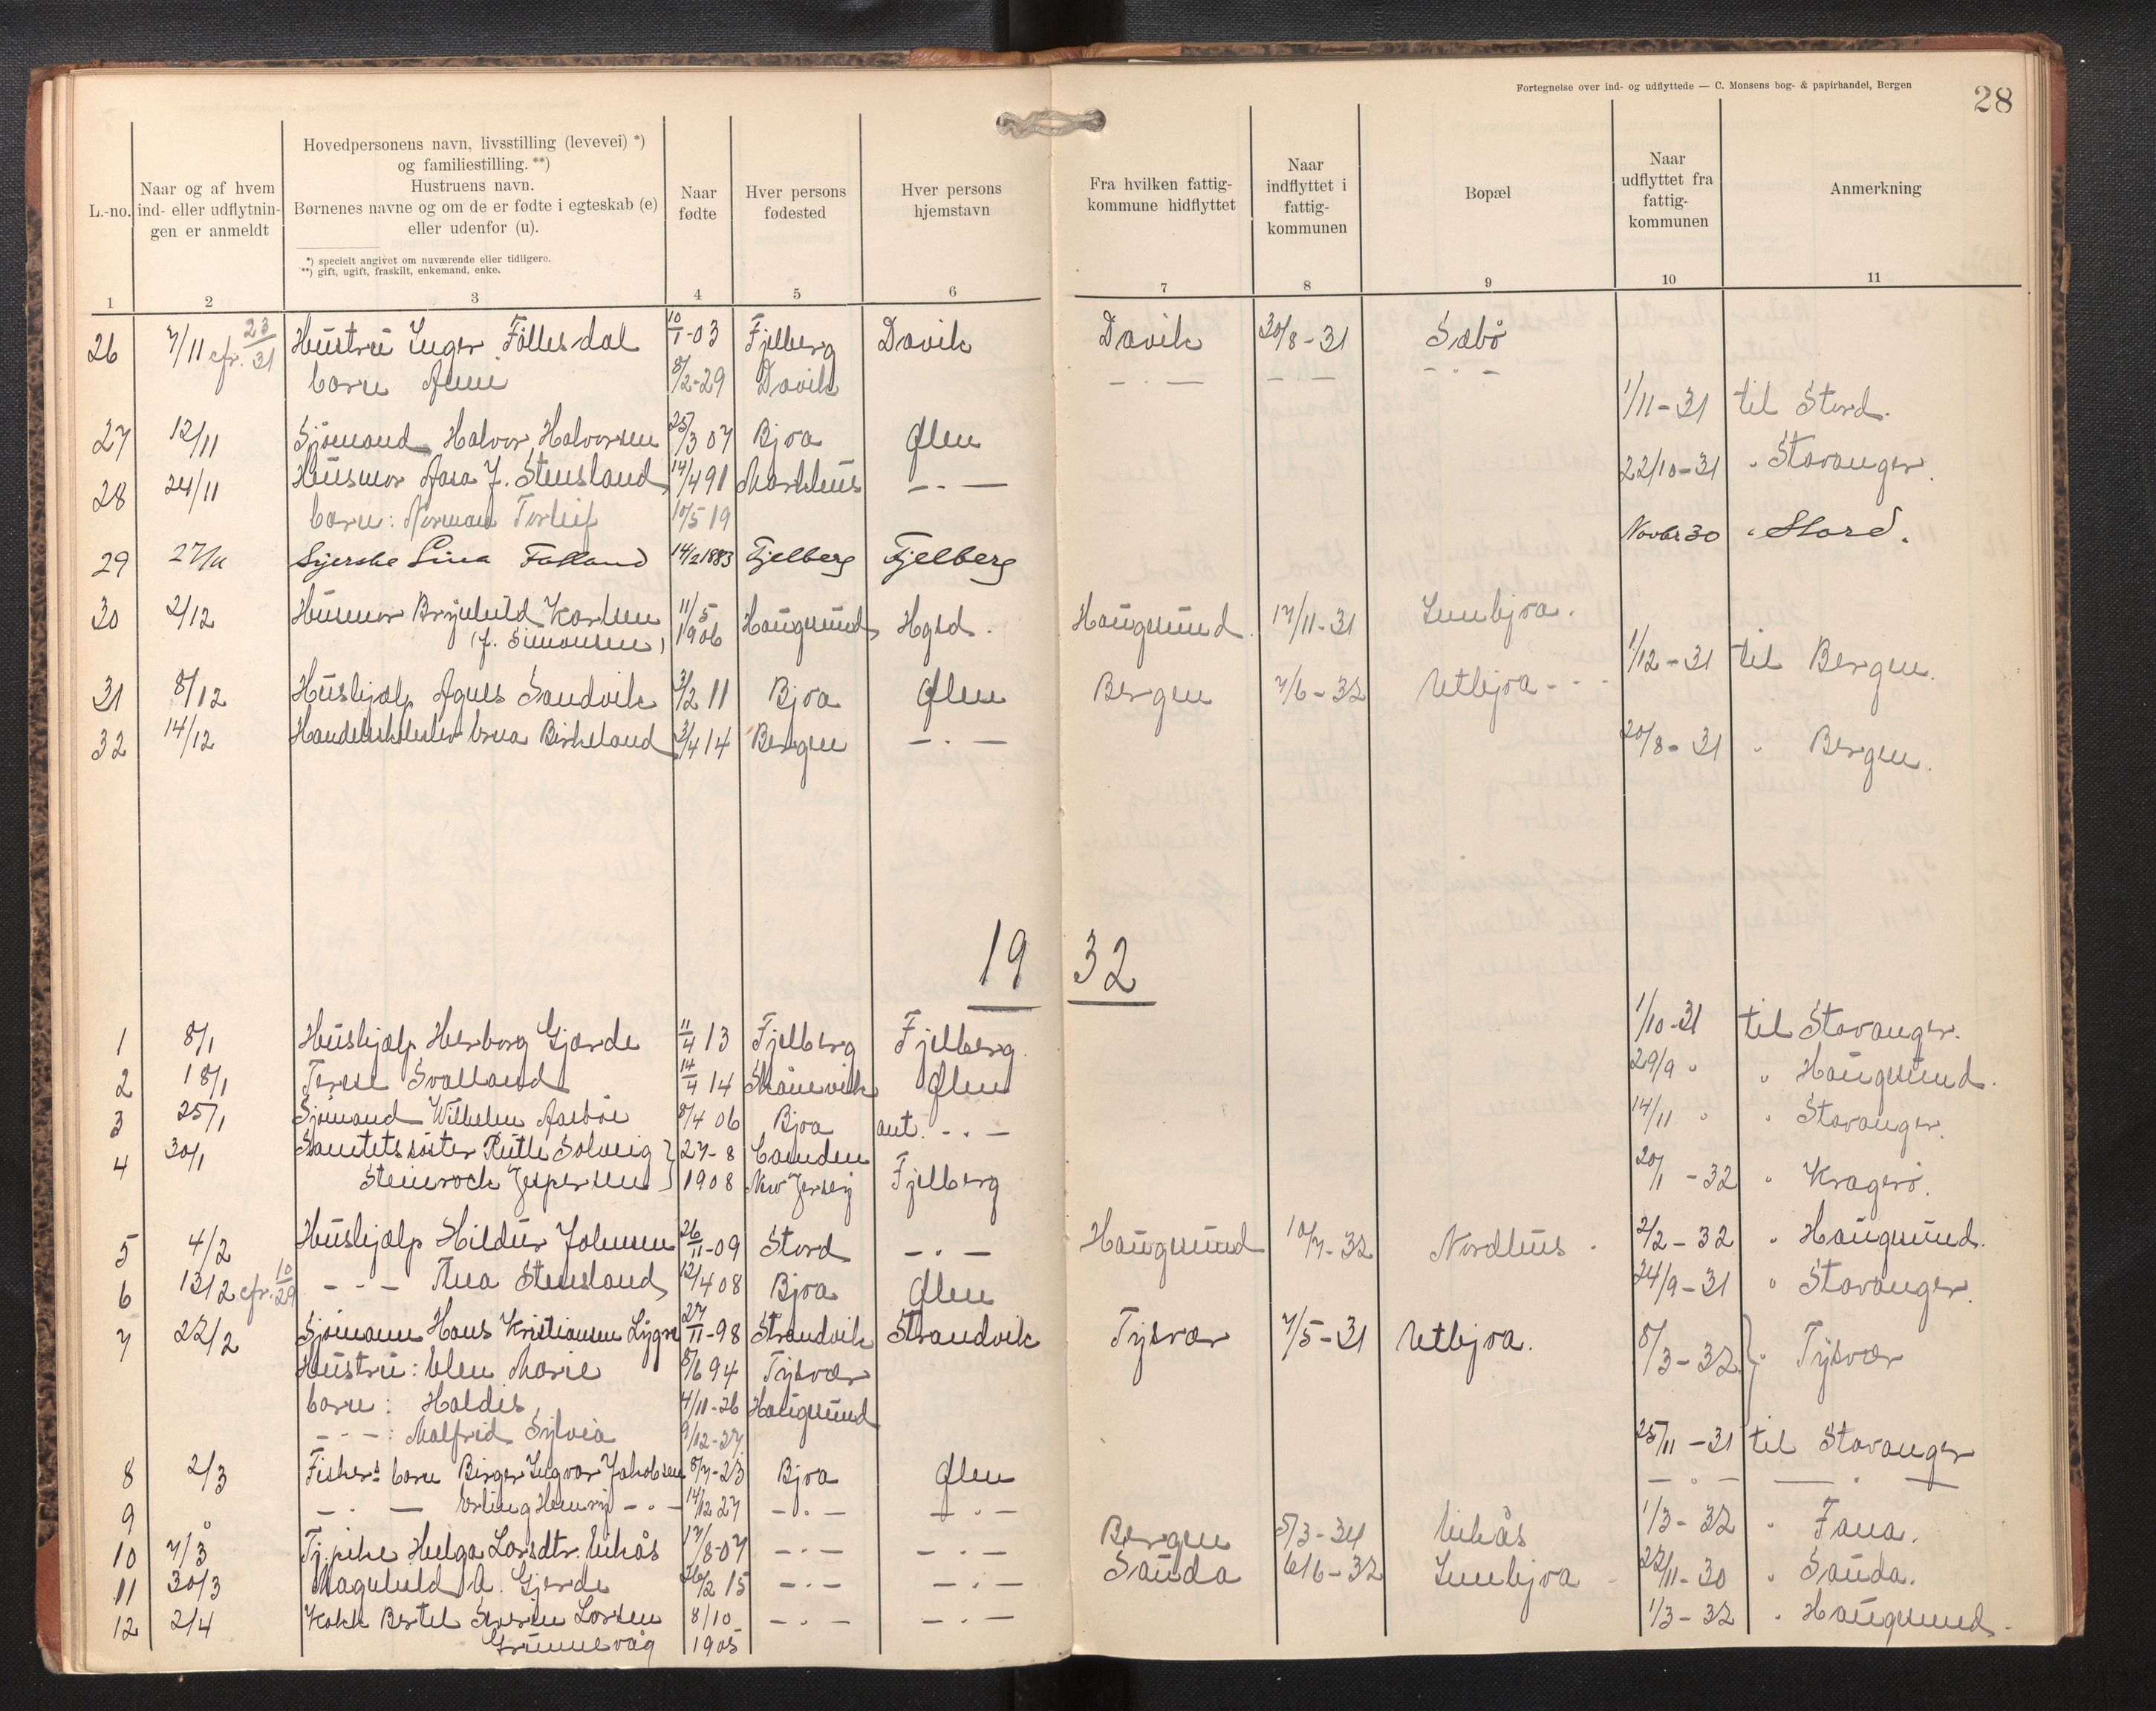 Fortegnelse over ind- og udflyttede — C. Monsens bog- & papirhandel, Bergen
28
L.-no.
Naar og af hvem ind- eller udflytningen er anmeldt
Hovedpersonens navn, livsstilling (levevei) *)
og familiestilling. **)
Hustruens navn.
Børnenes navne og om de er fødte i egteskab (e)
eller udenfor (u).
*) specielt angivet om nuværende eller tidligere.
**) gift, ugift, fraskilt, enkemand, enke.
Naar fødte
Hver persons fødested
Hver persons hjemstavn
Fra hvilken fattigkommune hidflyttet
Naar indflyttet i fattigkommunen
Bopæl
Naar udflyttet fra fattigkommunen
Anmerkning
1 2 3 4 5 6 7 8 9 10 11
26 7/11 cfr. 23/31 Hustru Inger Föllesdal 10/1-03 Fjelberg Davik Davik 30/8-31 Sæbö
barn 8/2-29 Davik — . — — . — — . —
1/11-31 til Stord.
27 12/11 Sjömand Halvor Halvorsen 25/3 07 Bjoa Ølen
22/10-31 " Stavanger.
28 24/11 Husmor Aasa J. Stensland 14/4 91 Markhus — . —
barn: Norman Torleif 10/5 19
Novbr 30 " Stord.
29 27/11 Syerske Lina Falland 14/2 1883 Fjelberg Fjelberg
30 2/12 Husmor Brynhild Karlsen 11/5 1906 Haugesund Hgsd. Haugesund 17/11-31 Innbjoa.
(f. Simonsen)
1/12-31 til Bergen.
31 8/12 Hushjælp Agnes Sandvik 3/2 11 Bjoa Ølen Bergen 7/6-32 Utbjoa
32 14/12 Handelsskoleelev Erna Birkeland 3/4 14 Bergen — . —
20/8-31 " Bergen.
19 32
1/10-31 til Stavanger.
1 8/1 Hushjælp Herborg Gjærde 11/4 13 Fjelberg Fjelberg.
29/9 " " Haugesund.
2 18/1 Svalland 14/4 14 Skånevik Ølen
14/11 " " Stavanger.
3 25/1 Sjömand Wilhelm Aasböe 8/4 06 Bjoa ant. — . —
4 30/1 Sanitetssöster Ruth Solveig 27-8 Camden
Steinrock Jespersen 1908 New Jersey Fjelberg 20/1-32 " Kragerö.
5 4/2 Hushjælp Hildur Johnsen 26/11-09 Stord — . — Haugesund 10/7-32 Nordhus 2/2-32 " Haugesund.
6 13/2 cfr. 10/29 - - - Anna Stensland 12/4 08 Bjoa Ølen 24/9-31 " Stavanger.
7 22/2 Sjömann Hans Kristiansen Lygre 27/11-98 Strandvik Strandvik Tysvær 7/5-31 Utbjoa. 8/3-32 " Tysvær
Hustru: Elen Marie 8/6 94 Tysvær
barn: Haldis 4/11-26 Haugesund
- - -: Malfrid Sylvia 9/12-27
25/11-31 til Stavanger
8 2/3 Fiskers barn Birger Ingvar Jakobsen 8/7-23 Bjoa Ølen — " — — . —
9 " — . — Erling Henry — . — 14/12 27 — . — — . —
10 7/3 Tj.pike Helga Larsdtr. Eikås 17/8-07 — . — — . — Bergen 5/3-34 Eikås 1/3-32 " Fana.
11 30/3 Magnhild A. Gjerde 26/2 15 — . — — . — Sauda 6/6-32 Innbjoa 22/11-30 " Sauda.
12 2/4 Kokk Bertel Severin Larsen 8/10 — . — — . — 1/3-32 " Haugesund.
Grunnevåg 1905